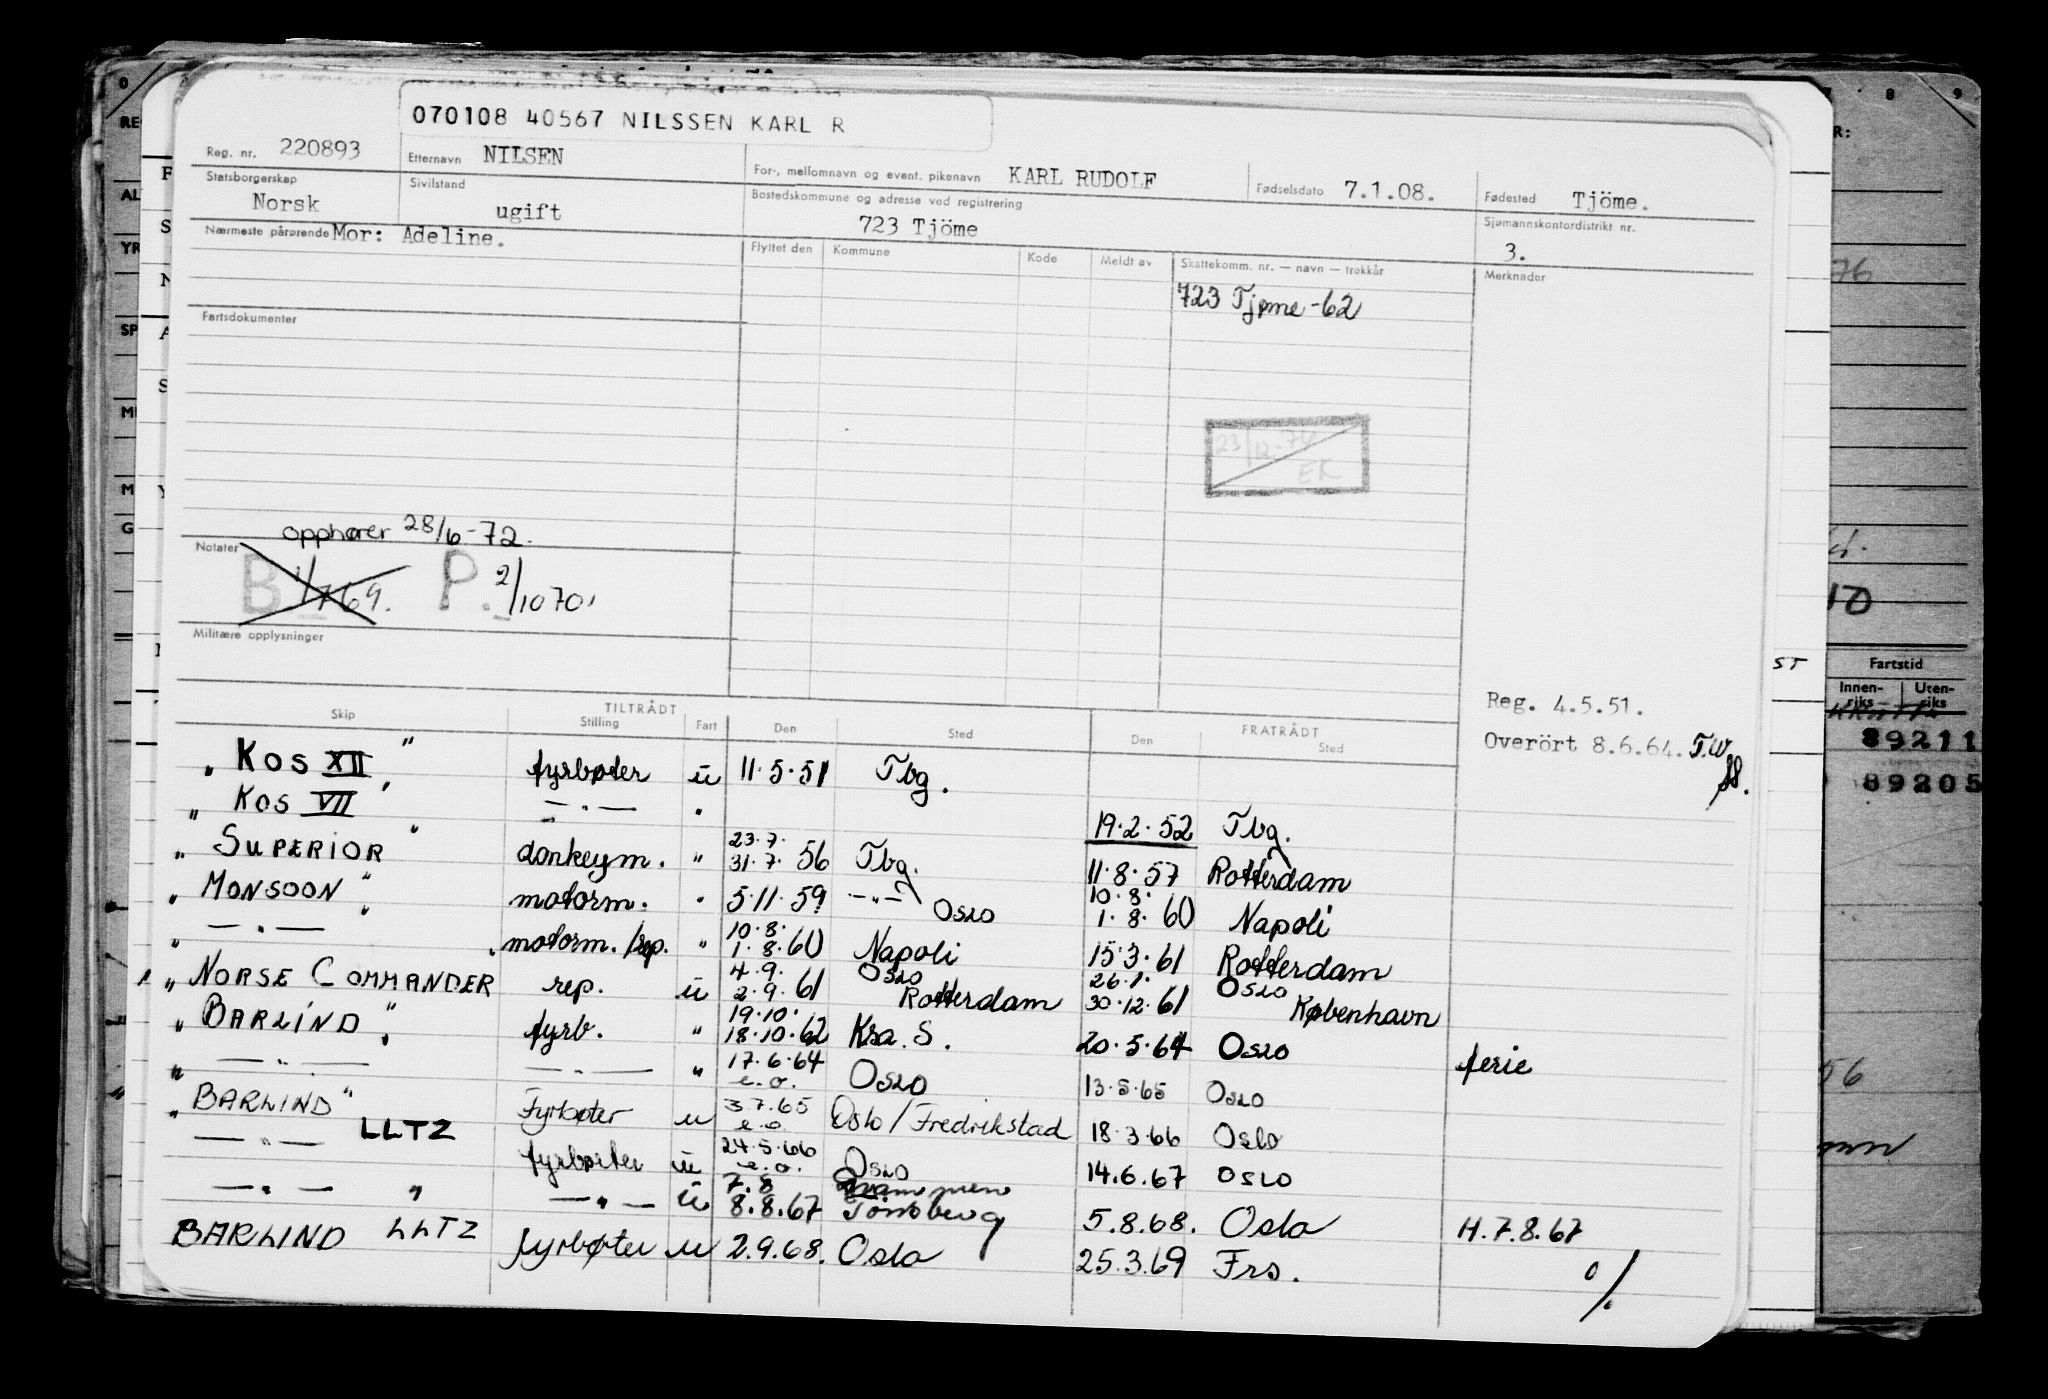 070108 40567 NILSSEN KARL R
Reg. nr. 220893 Etternavn NILSEN For-, mellomnavn og event. pikenavn KARL RUDOLF Fødselsdato 7.1.08. Fødested Tjöme.
Statsborgerskap Norsk Sivilstand ugift Bostedskommune og adresse ved registrering 723 Tjöme Sjømannskontordistrikt nr. 3.
Nærmeste pårørende Mor: Adeline. Flyttet den Kommune Kode Meldt av Skattekomm. nr. — navn — trekkår Merknader
723 Tjøme -62
Fartsdokumenter
23/12-76
EK
opphører 28/6-72.
Notater B 1/7 69. P. 2/10 70,
Militære opplysninger
Reg. 4.5.51.
Overört 8.6.64. T.W
TILTRÅDT FRATRÅDT
Skip Stilling Fart Den Sted Den Sted
" KOS XII " fyrbøter ü 11.5.51 Tbg.
" KOS VII " — " — " 19.2.52 Tbg.
" SUPERIOR " donkeym. " 23.7. 31.7. 56 Tbg. 11.8.57 Rotterdam
" MONSOON " motorm. " 5.11.59 — " — Oslo 10.8. 1.8. 60 Napoli
" — " — " motorm./rep. " 10.8. 1.8.60 Napoli 15.3.61 Rotterdam
" NORSE COMMANDER rep. ü 4.9. 2.9. 61 Oslo Rotterdam 26.1. 30.12.61 Oslo København
" BARLIND " fyrb. " 19.10. 18.10.62 Kra. S. 20.5.64 Oslo ferie
" — " — — " — " 17.6.64 e.o. Oslo 13.5.65 Oslo
" BARLIND " Fyrbøter u 3.7.65 e.o. Oslo/Fredrikstad 18.3.66 Oslo
— " — LLTZ fyrbøter ü 24.5.66 e.o. Oslo 14.6.67 Oslo
— " — " — " — ü 7.8 8.8.67 Tönsberg 5.8.68. Oslo H.7.8.67
BARLIND LLTZ fyrbøter u 2.9.68. Oslo 25.3.69 Frs.
Fartstid
Innen-riks Uten-riks
89211
89205